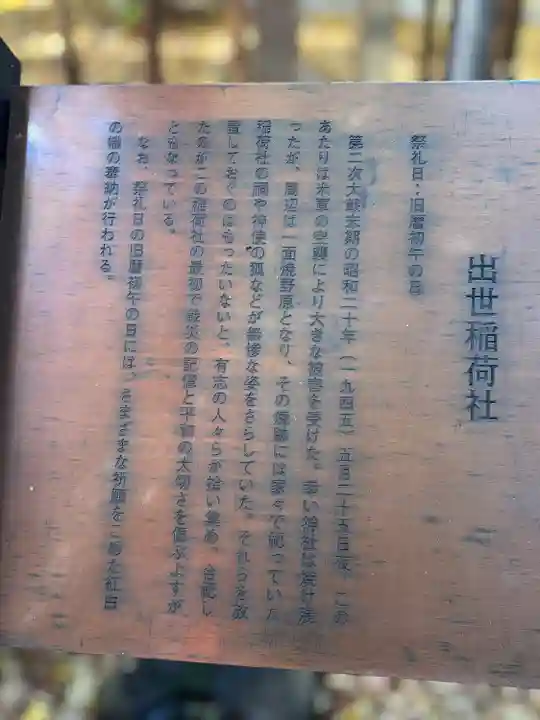 出世稲荷社
祭礼日:旧暦初午の日
第二次大戦末期の昭和二十年(一九四五)五月二十五日夜、この
あたりは米軍の空襲により大きな被害を受けた。幸い神社は焼け残
ったが、周辺は一面焼野原となり、その焼跡には家々で祀っていた
稲荷社の祠や神使の狐などが無惨な姿をさらしていた。それらを放
置しておくのはもったいないと、有志の人々らが拾い集め、合祀し
たのがこの稲荷社の最初で戦災の記憶と平和の大切さを偲ぶよすが
となっている。
なお、祭礼日の旧暦初午の日には、さまざまな祈願をこめた紅白
の幟の奉納が行われる。